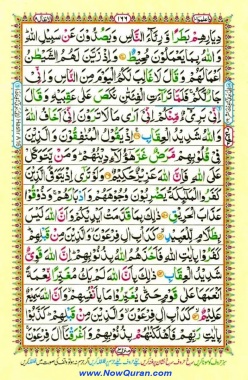 دِيَارِهِمْ بَطَرًا وَّرِئَآءَ النَّاسِ وَيَصُدُّوْنَ عَنْ سَبِيْلِ اللّٰهِ ؕ
وَاللّٰهُ بِمَا يَعْمَلُوْنَ مُحِيْطٌ ۞ وَاِذْ زَيَّنَ لَهُمُ الشَّيْطٰنُ
اَعْمَالَهُمْ وَقَالَ لَا غَالِبَ لَكُمُ الْيَوْمَ مِنَ النَّاسِ وَاِنِّيْ
جَارٌ لَّكُمْ ۚ فَلَمَّا تَرَآءَتِ الْفِئَتٰنِ نَكَصَ عَلٰى عَقِبَيْهِ وَقَالَ
اِنِّيْ بَرِيْٓءٌ مِّنْكُمْ اِنِّيْٓ اَرٰى مَا لَا تَرَوْنَ اِنِّيْٓ اَخَافُ اللّٰهَ ؕ
وَاللّٰهُ شَدِيْدُ الْعِقَابِ ۞ اِذْ يَقُوْلُ الْمُنٰفِقُوْنَ وَالَّذِيْنَ
فِيْ قُلُوْبِهِمْ مَّرَضٌ غَرَّ هٰٓؤُلَآءِ دِيْنُهُمْ ؕ وَمَنْ يَّتَوَكَّلْ
عَلَى اللّٰهِ فَاِنَّ اللّٰهَ عَزِيْزٌ حَكِيْمٌ ۞ وَلَوْ تَرٰٓى اِذْ يَتَوَفَّى الَّذِيْنَ
كَفَرُوا ۙ الْمَلٰٓئِكَةُ يَضْرِبُوْنَ وُجُوْهَهُمْ وَاَدْبَارَهُمْ ۚ وَذُوْقُوْا
عَذَابَ الْحَرِيْقِ ۞ ذٰلِكَ بِمَا قَدَّمَتْ اَيْدِيْكُمْ وَاَنَّ اللّٰهَ لَيْسَ
بِظَلَّامٍ لِّلْعَبِيْدِ ۞ كَدَاْبِ اٰلِ فِرْعَوْنَ ۙ وَالَّذِيْنَ مِنْ قَبْلِهِمْ ؕ
كَفَرُوْا بِاٰيٰتِ اللّٰهِ فَاَخَذَهُمُ اللّٰهُ بِذُنُوْبِهِمْ ؕ اِنَّ اللّٰهَ قَوِيٌّ
شَدِيْدُ الْعِقَابِ ۞ ذٰلِكَ بِاَنَّ اللّٰهَ لَمْ يَكُ مُغَيِّرًا نِّعْمَةً
اَنْعَمَهَا عَلٰى قَوْمٍ حَتّٰى يُغَيِّرُوْا مَا بِاَنْفُسِهِمْ ۙ وَاَنَّ اللّٰهَ سَمِيْعٌ
عَلِيْمٌ ۞ كَدَاْبِ اٰلِ فِرْعَوْنَ ۙ وَالَّذِيْنَ مِنْ قَبْلِهِمْ ؕ كَذَّبُوْا
بِاٰيٰتِ رَبِّهِمْ فَاَهْلَكْنٰهُمْ بِذُنُوْبِهِمْ وَاَغْرَقْنَآ اٰلَ فِرْعَوْنَ ۚ
www.NowQuran.com